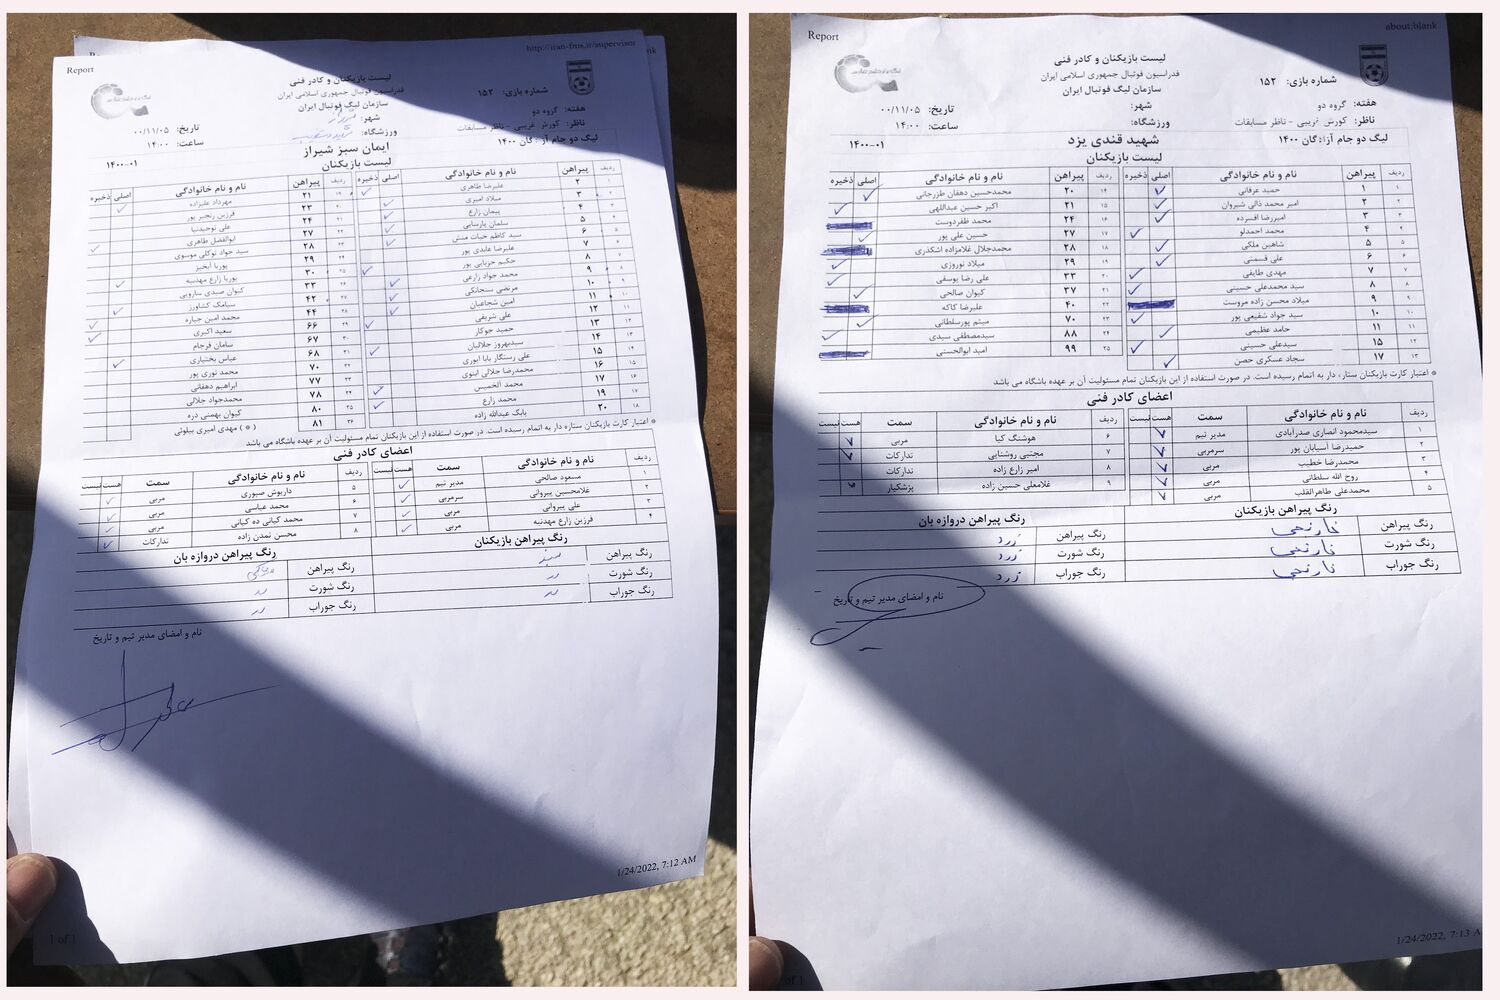 Report
http://iran-fms.ir/supervisor
لیست بازیکنان و کادر فنی
فدراسیون فوتبال جمهوری اسلامی ایران
سازمان لیگ فوتبال ایران
شماره بازی: ۱۵۲
هفته: گروه دو
شهر:
تاریخ: ۰۰/۱۱/۰۵
ناظر: کورش غریبی - ناظر مسابقات
ورزشگاه:
ساعت: ۱۴:۰۰
لیگ دو جام آزادگان ۱۴۰۰
ایمان سبز شیراز
۱۴۰۰-۰۱
لیست بازیکنان
ردیف پیراهن نام و نام خانوادگی اصلی ذخیره
۲ علیرضا طاهری
۳ میلاد امیری
۴ پیمان زارع
۵ سلمان پارسایی
۶ سید کاظم حیات منش
۷ علیرضا عابدی پور
۸ حکیم حزبایی پور
۹ محمد جواد زارعی
۱۰ مرتضی سنجانکی
۱۱ امین شجاعیان
۱۲ علی شریفی
۱۳ حمید جوکار
۱۴ سیدبهروز جلالیان
۱۵ علی رستگار بابا انوری
۱۶ محمدرضا جلالی اینوی
۱۷ محمد الخمیس
۱۹ محمد زارع
۲۰ بابک عبدالله زاده
ردیف پیراهن نام و نام خانوادگی اصلی ذخیره
۲۱ مهرداد علیزاده
۲۳ فرزین رنجبر پور
۲۴ علی توحیدنیا
۲۷ ابوالفضل طاهری
۲۸ سید جواد توکلی موسوی
۲۹ پوریا آبخیز
۳۰ پوریا زارع مهدنیه
۳۳ کیوان صیدی سارویی
۴۲ سیامک کشاورز
۴۴ محمد امین جباره
۶۶ سعید اکبری
۶۷ سامان فرجام
۶۸ عباس بختیاری
۷۰ محمد نوری پور
۷۷ ابراهیم دهقانی
۷۸ محمدجواد جلالی
۸۰ کیوان بهمنی دره
۸۱ ( * ) مهدی امیری بیلوئی
* اعتبار کارت بازیکنان ستاره دار به اتمام رسیده است. در صورت استفاده از این بازیکنان تمام مسئولیت آن بر عهده باشگاه می باشد
اعضای کادر فنی
ردیف نام و نام خانوادگی سمت هست نیست
۱ مسعود صالحی مدیر تیم
۲ غلامحسین پیروانی سرمربی
۳ علی پیروانی مربی
۴ فرزین زارع مهدنیه مربی
ردیف نام و نام خانوادگی سمت هست نیست
۵ داریوش صبوری مربی
۶ محمد عباسی مربی
۷ محمد کیانی ده کیانی مربی
۸ محسن تمدن زاده تدارکات
رنگ پیراهن بازیکنان
رنگ پیراهن دروازه بان
رنگ پیراهن سبز
رنگ شورت
رنگ جوراب
رنگ پیراهن
رنگ شورت
رنگ جوراب
نام و امضای مدیر تیم و تاریخ
1/24/2022, 7:12 AM
1 of 1
Report
about:blank
لیست بازیکنان و کادر فنی
فدراسیون فوتبال جمهوری اسلامی ایران
سازمان لیگ فوتبال ایران
شماره بازی: ۱۵۲
هفته: گروه دو
شهر:
تاریخ: ۰۰/۱۱/۰۵
ناظر: کورش غریبی - ناظر مسابقات
ورزشگاه:
ساعت: ۱۴:۰۰
لیگ دو جام آزادگان ۱۴۰۰
شهید قندی یزد
۱۴۰۰-۰۱
لیست بازیکنان
ردیف پیراهن نام و نام خانوادگی اصلی ذخیره
۱ ۱ حمید عرفانی
۲ ۲ امیر محمد دالی شیروان
۳ ۳ امیررضا افسرده
۴ ۴ محمد احمدلو
۵ ۵ شاهین ملکی
۶ ۶ علی قسمتی
۷ ۷ مهدی طایفی
۸ ۸ سید محمدعلی حسینی
۹ ۹ میلاد محسن زاده مروست
۱۰ ۱۰ سید جواد شفیعی پور
۱۱ ۱۱ حامد عظیمی
۱۲ ۱۵ سیدعلی حسینی
۱۳ ۱۷ سجاد عسکری حصن
ردیف پیراهن نام و نام خانوادگی اصلی ذخیره
۱۴ ۲۰ محمدحسین دهقان طزرجانی
۱۵ ۲۱ اکبر حسین عبداللهی
۱۶ ۲۴ محمد ظفردوست
۱۷ ۲۷ حسین علی پور
۱۸ ۲۸ محمدجلال غلامزاده اشکذری
۱۹ ۲۹ میلاد نوروزی
۲۰ ۳۳ علی رضا یوسفی
۲۱ ۳۷ کیوان صالحی
۲۲ ۴۰ علیرضا کاکه
۲۳ ۷۰ میثم پورسلطانی
۲۴ ۸۸ سیدمصطفی سیدی
۲۵ ۹۹ امید ابوالحسنی
* اعتبار کارت بازیکنان ستاره دار به اتمام رسیده است. در صورت استفاده از این بازیکنان تمام مسئولیت آن بر عهده باشگاه می باشد
اعضای کادر فنی
ردیف نام و نام خانوادگی سمت هست نیست
۱ سیدمحمود انصاری صدرابادی مدیر تیم
۲ حمیدرضا آسیابان پور سرمربی
۳ محمدرضا خطیب مربی
۴ روح الله سلطانی مربی
۵ محمدعلی طاهرالقلب مربی
ردیف نام و نام خانوادگی سمت هست نیست
۶ هوشنگ کیا مربی
۷ مجتبی روشنایی تدارکات
۸ امیر زارع زاده تدارکات
۹ غلامعلی حسین زاده پزشکیار
رنگ پیراهن بازیکنان
رنگ پیراهن دروازه بان
رنگ پیراهن نارنجی
رنگ شورت نارنجی
رنگ جوراب نارنجی
رنگ پیراهن زرد
رنگ شورت زرد
رنگ جوراب زرد
نام و امضای مدیر تیم و تاریخ
1/24/2022, 7:13 A
of 1